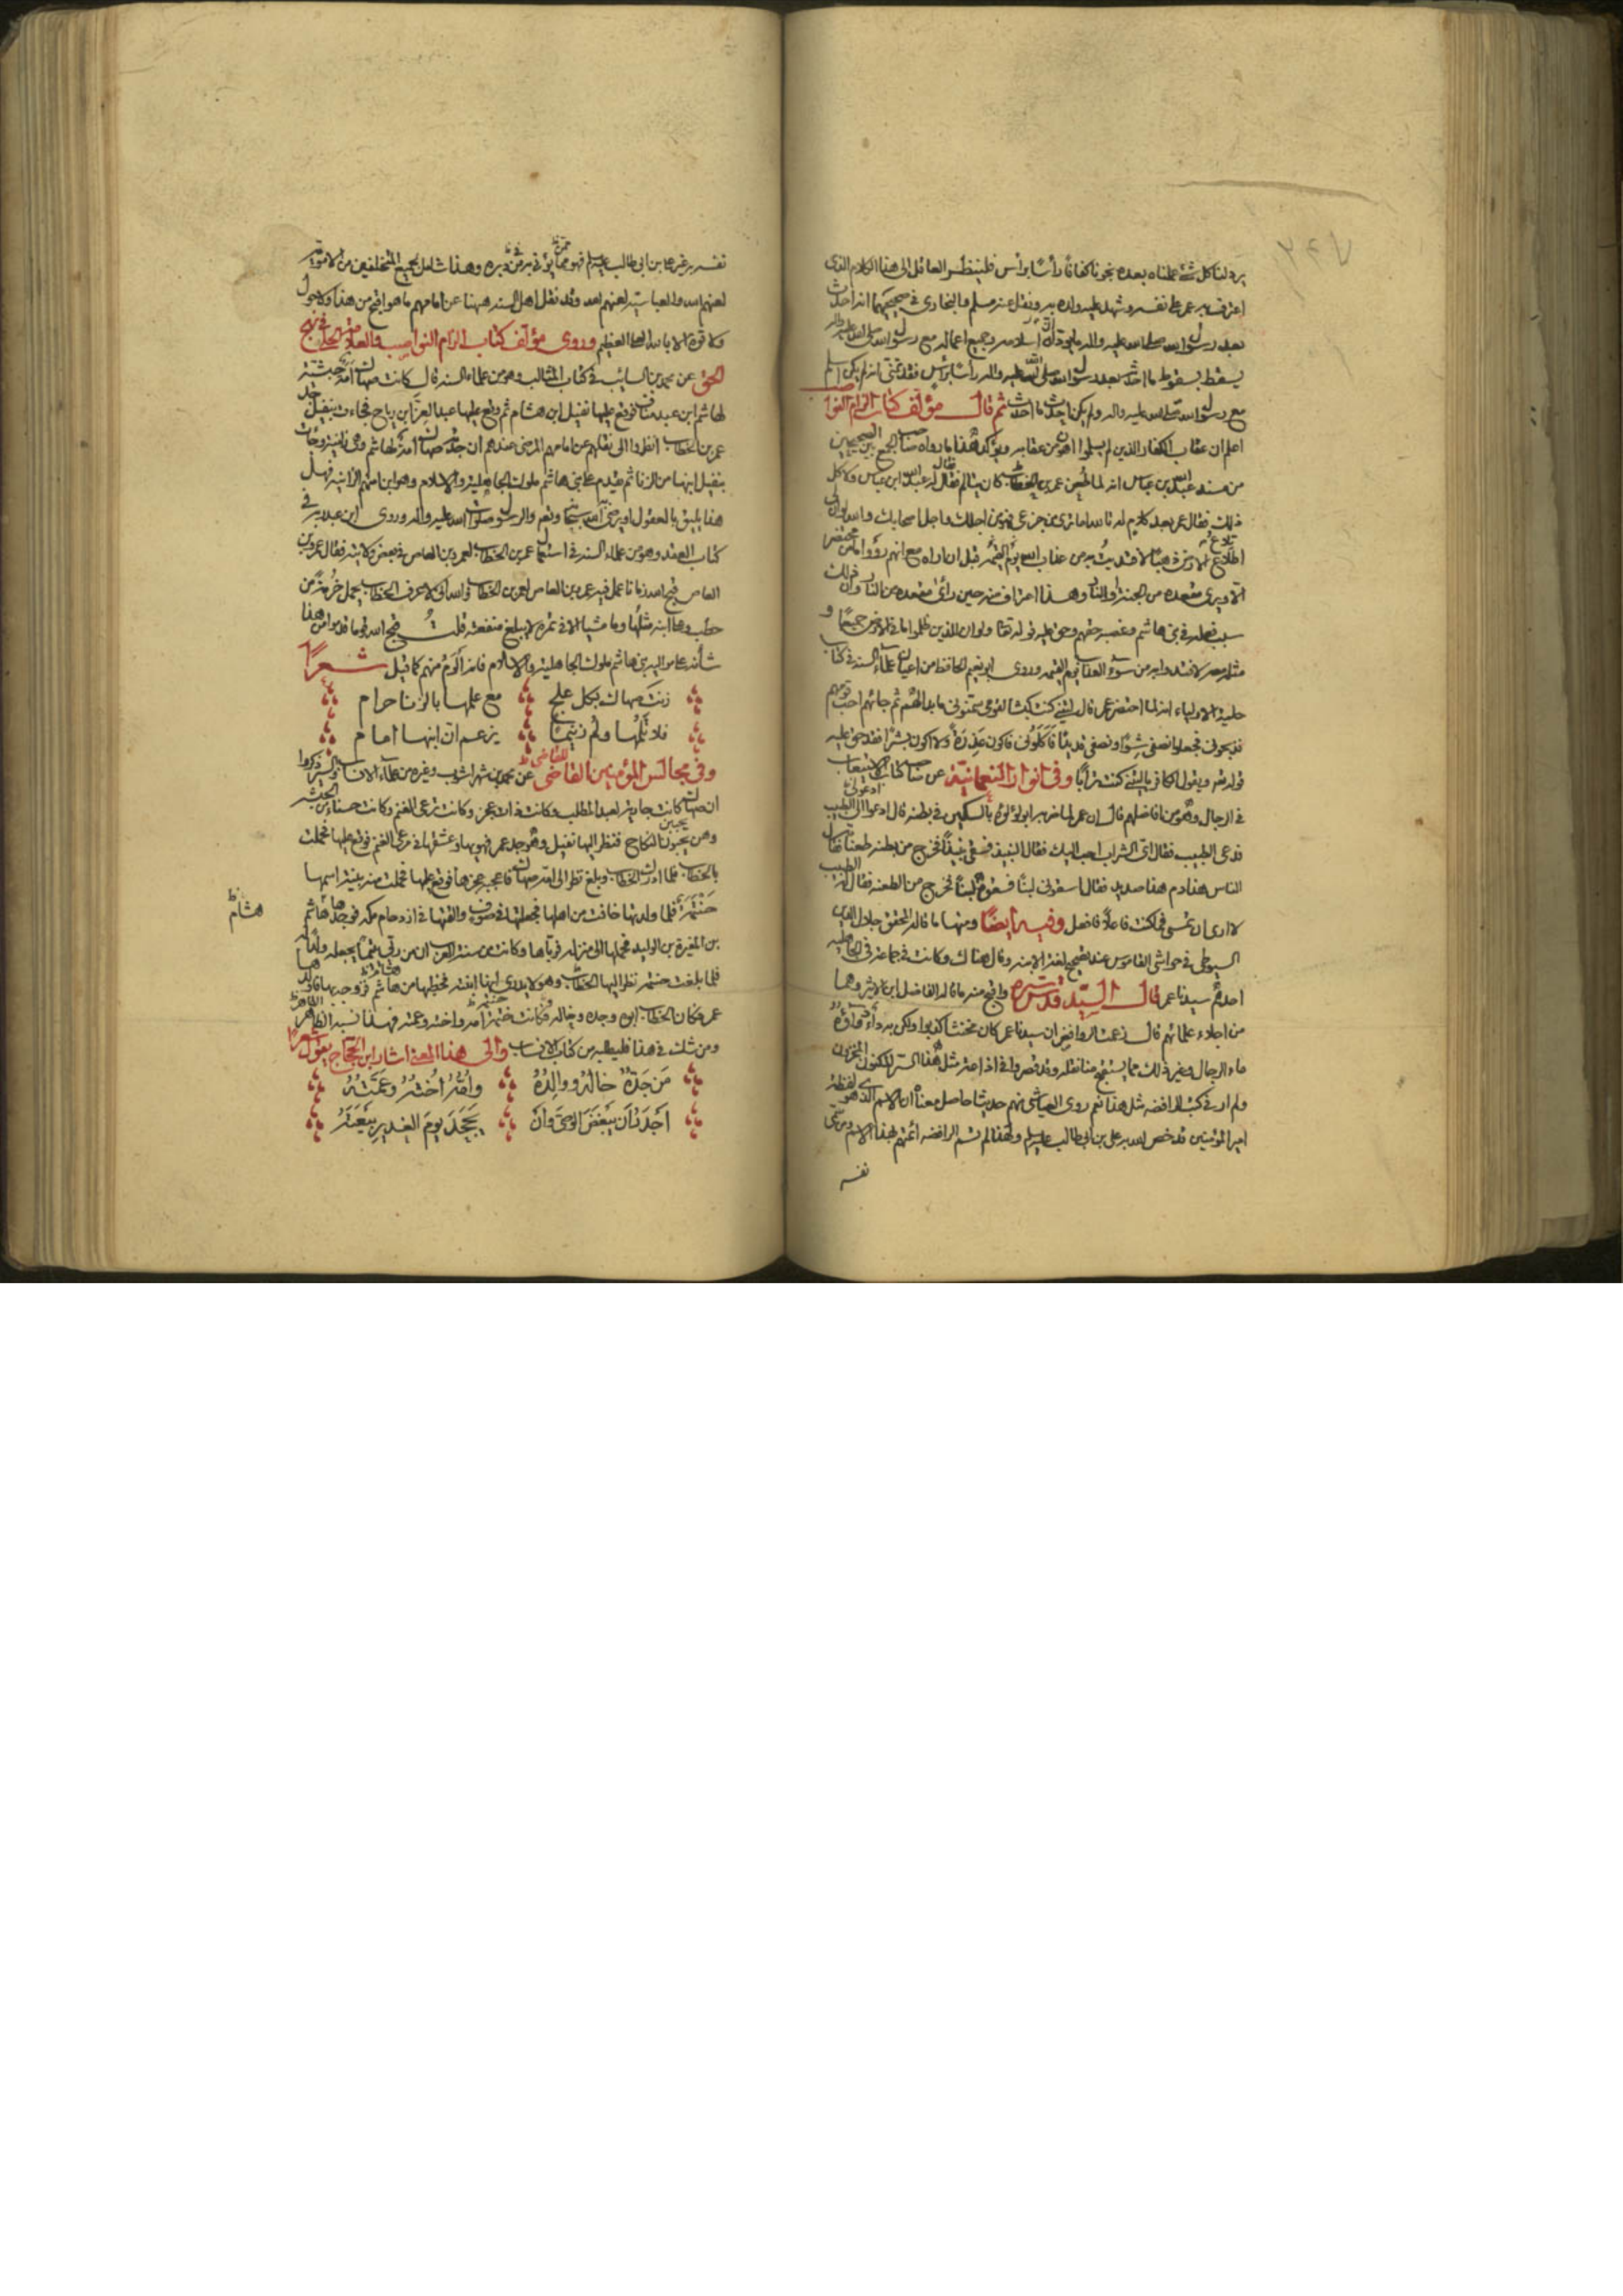 يرد لنا كل شئ عملناه بعده نجونا كفافا رأسا برأس فلينظر العاقل الى هذا الكلام الذى
اعترف به عمر على نفسه وشهد عليه ولده به ونقل عنه مسلم والبخارى فى صحيحيهما انه احدث
بعد رسول الله صلى الله عليه واله ما يود ان اسلامه وجميع اعماله مع رسول الله صلى الله عليه واله
يسقط بسقوط ما احدث بعد رسول الله صلى الله عليه واله رأسا برأس فقد تمنى انه لم يكن اسلم
مع رسول الله صلى الله عليه واله ولم يكن احدث ما احدث ثم قال مؤلف كتاب الزام النواصب
اعلم ان عقاب الكفار الذين لم يسلموا اهون من عقابه ويؤكد هذا ما رواه صاحب الجمع بين الصحيحين
من مسند عبد الله بن عباس انه لما طعن عمر بن الخطاب كان يتألم فقال له عبد الله ابن عباس ولا كل
ذلك فقال عمر بعد كلام له اما ما ترى من جزعى فهو من اجلك واجل اصحابك والله لو ان لى
طلاع الارض ذهبا لافتديت به من عذاب الله يوم القيمة قبل ان اراه مع انهم رووا ما من محتضر
الا ويرى مقعده من الجنة والنار وهذا اعتراف منه حين رأى مقعده من النار وان ذلك
سبب فعله فى بنى هاشم وغصبه حقهم وحق عليه قوله تعالى ولو ان للذين ظلموا ما فى الارض جميعا و
مثله معه لافتدوا به من سوء العذاب يوم القيمة وروى ابو نعيم الحافظ من اعيان علماء السنة فى كتاب
حلية الاولياء انه لما احتضر عمر قال ليتنى كنت كبشا لقومى سمنونى ما بدا لهم ثم جائهم احب قومهم
فذبحونى فجعلوا نصفى شواء ونصفى قديدا فاكلونى فاكون عذرة ولا اكون بشرا فقد حق عليه
قوله تعالى ويقول الكافر يا ليتنى كنت ترابا وفى انوار النعمانية عن صاحب كتاب الاستيعاب
فى الرجال وهو من افاضلهم قال ان عمر لما ضربه ابو لؤلؤة بالسكين فى بطنه قال ادعوا الى الطبيب
فدعى الطبيب فقال اى الشراب احب اليك فقال النبيذ فسقى نبيذا فخرج من بطنه طعنا فقال
الناس هذا دم هذا صديد فقال اسقونى لبنا فسقوه لبنا فخرج من الطعنة فقال له الطبيب
لا ارى ان تمسى فما كنت فاعلا فافعل وفيه ايضا ومنها ما قاله المحقق جلال الدين
السيوطى فى حواشى القاموس عند تصحيح لغة الابنه وقال هناك وكانت فى جماعة فى الجاهلية
احدهم سيدنا عمر قال السيد قدس سره واقبح منه ما قاله الفاضل ابن الاثير وهما
من اجلاء علمائهم قال زعمت الروافض ان سيدنا عمر كان مخنثا كذبوا ولكن به داء دواؤه
ماء الرجال وغير ذلك مما يستقبح منا نقله وقد قصروا فى اذاعة مثل هذا السر المكنون المخزون
ولم ار فى كتب الرافضة مثل هذا نعم روى العياشى منهم حديثا حاصل معناه ان الاسم الذى هو لفظ
امير المؤمنين قد خص الله به على بن ابى طالب عليه السلام ولهذا لم تسم الرافضة ائمتهم بهذا الاسم ومن سمى
نفسه
نفسه به غير على بن ابى طالب عليه السلام فهو مما يؤتى به من دبره وهذا شامل لجميع المتخلفين من الاموية
لعنهم الله والعباسية لعنهم الله وقد نقل اهل السنة ههنا عن امامهم ما هو اقبح من هذا ولا حول
ولا قوة الا بالله العلى العظيم وروى مؤلف كتاب الزام النواصب والعلامة الحلى فى نهج
الحق عن محمد بن السايب فى كتاب المثالب وهو من علماء السنة قال كانت صهاك امة حبشية
لهاشم ابن عبد مناف فوقع عليها نفيل ابن هشام ثم وقع عليها عبد العزى بن رياح فجاءت بنفيل جد
عمر بن الخطاب انظروا الى نقلهم عن امامهم المرضى عندهم ان جدته صهاك امة لهاشم وهى زانية وجائت
بنفيل ابنها من الزنا ثم يتقدم على بنى هاشم ملوك الجاهلية والاسلام وهو ابن امتهم الزانية فهل
هذا يليق بالعقول او يرضى الله سبحانه ونعم والرسول صلوات الله عليه واله وروى ابن عبد ربه فى
كتاب العقد وهو من علماء السنة فى استعمال عمر بن الخطاب لعمرو بن العاص فى بعض ولايته فقال عمرو بن
العاص قبح الله زمانا عمل فيه عمرو بن العاص لعمر بن الخطاب والله انى لاعرف الخطاب يحمل حزمة من
حطب وعلى ابنه مثلها وما مشيا الا فى نمرة لا يبلغ منفعته قلت قبح الله قوما قدموا من هذا
شأنه على موالیه بنى هاشم ملوك الجاهلية والاسلام فانه ألوم منهم كما قيل شعرا
زنت صهاك بكل علج مع علمها بالزنا حرام
فلا تلمها ولم زنيما يزعم ان ابنها امام
وفى مجالس المؤمنين القاضى عن محمد بن شهر اشوب وغيره من علماء الانساب والسير ذكروا
ان صهاك كانت جارية لعبد المطلب وكانت ذات عجز وكانت ترعى الغنم وكانت حسناء من الحبشة
وهن يحبون النكاح فنظر اليها نفيل وهو جد عمر فهويها وعشقها فى مرعى الغنم فوقع عليها فحملت
بالخطاب فلما ادرك الخطاب وبلغ نظر الى امه صهاك فاعجبه عجزها فوقع عليها فحملت منه ببنت اسمها
حنتمة فلما ولدتها خافت من اهلها فجعلتها فى صوف والقتها فى ازدحام مكة فوجدها هاشم
هشام ظ
بن المغيرة بن الوليد فحملها الى منزله فرباها وكانت من سنة العرب ان من ربى يتيما يجعله ولدا له
فلما بلغت حنتمة نظر اليها الخطاب وهو لا يدرى انها ابنته فخطبها من هاشم فزوجه بها فاولدها
عمر فكان الخطاب ابوه وجده وخاله وكانت حنتمة امه واخته وعمته فهذا نسبه الطاهر
ومن شك فى هذا فليطلبه من كتاب الانساب والى هذا المعنى اشار ابن الحجاج يقول شعرا
من جده خاله ووالده وامه اخته وعمته
اجدر ان يبغض الوصى وان يجحد يوم الغدير بيعته